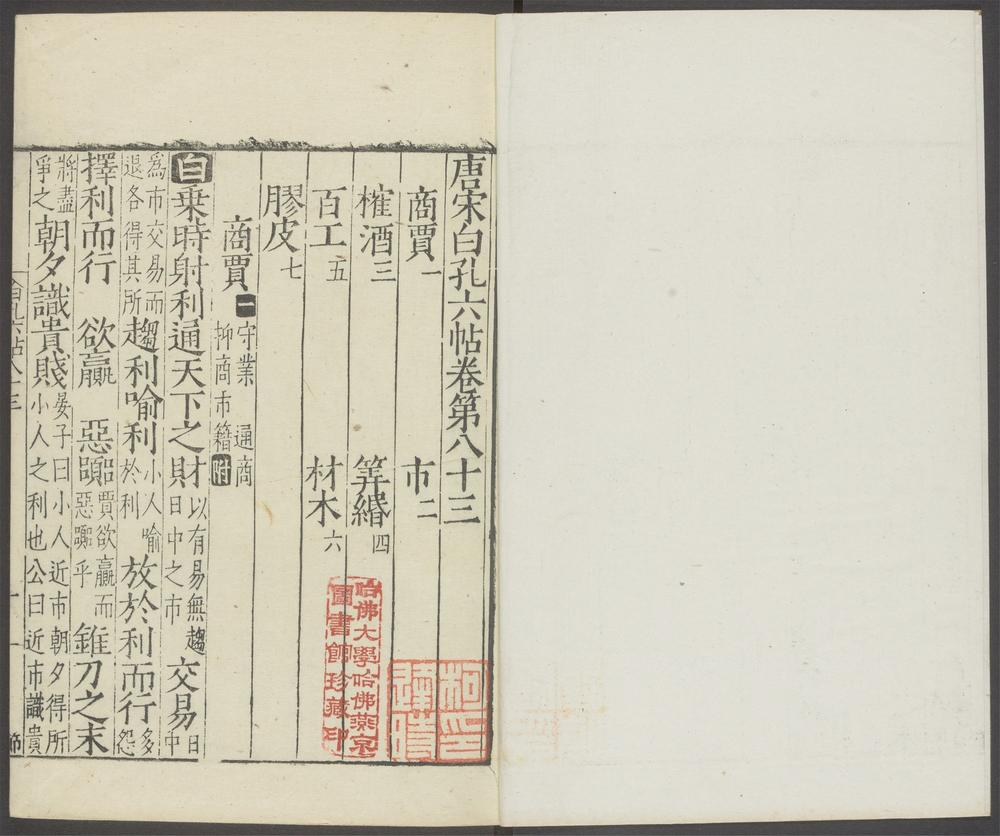 唐宋白孔六帖卷第八十三
商賈一 市二
榷酒三 筭緡四
百工五 材木六
膠皮七
商賈一 守業 通商 抑商市籍附
白乗時射利通天下之財以有易無趨日中之市交易日中
為市交易而退各得其所趨利喻利小人喻於利放於利而行多怨
擇利而行 欲贏 惡囂賈欲贏而惡囂乎錐刀之末
將盡爭之朝夕識貴賤晏子曰小人近市朝夕得所小人之利也公曰近市識貴
白孔六帖八十三
一
哈佛大學哈佛燕京
圖書館珍藏印